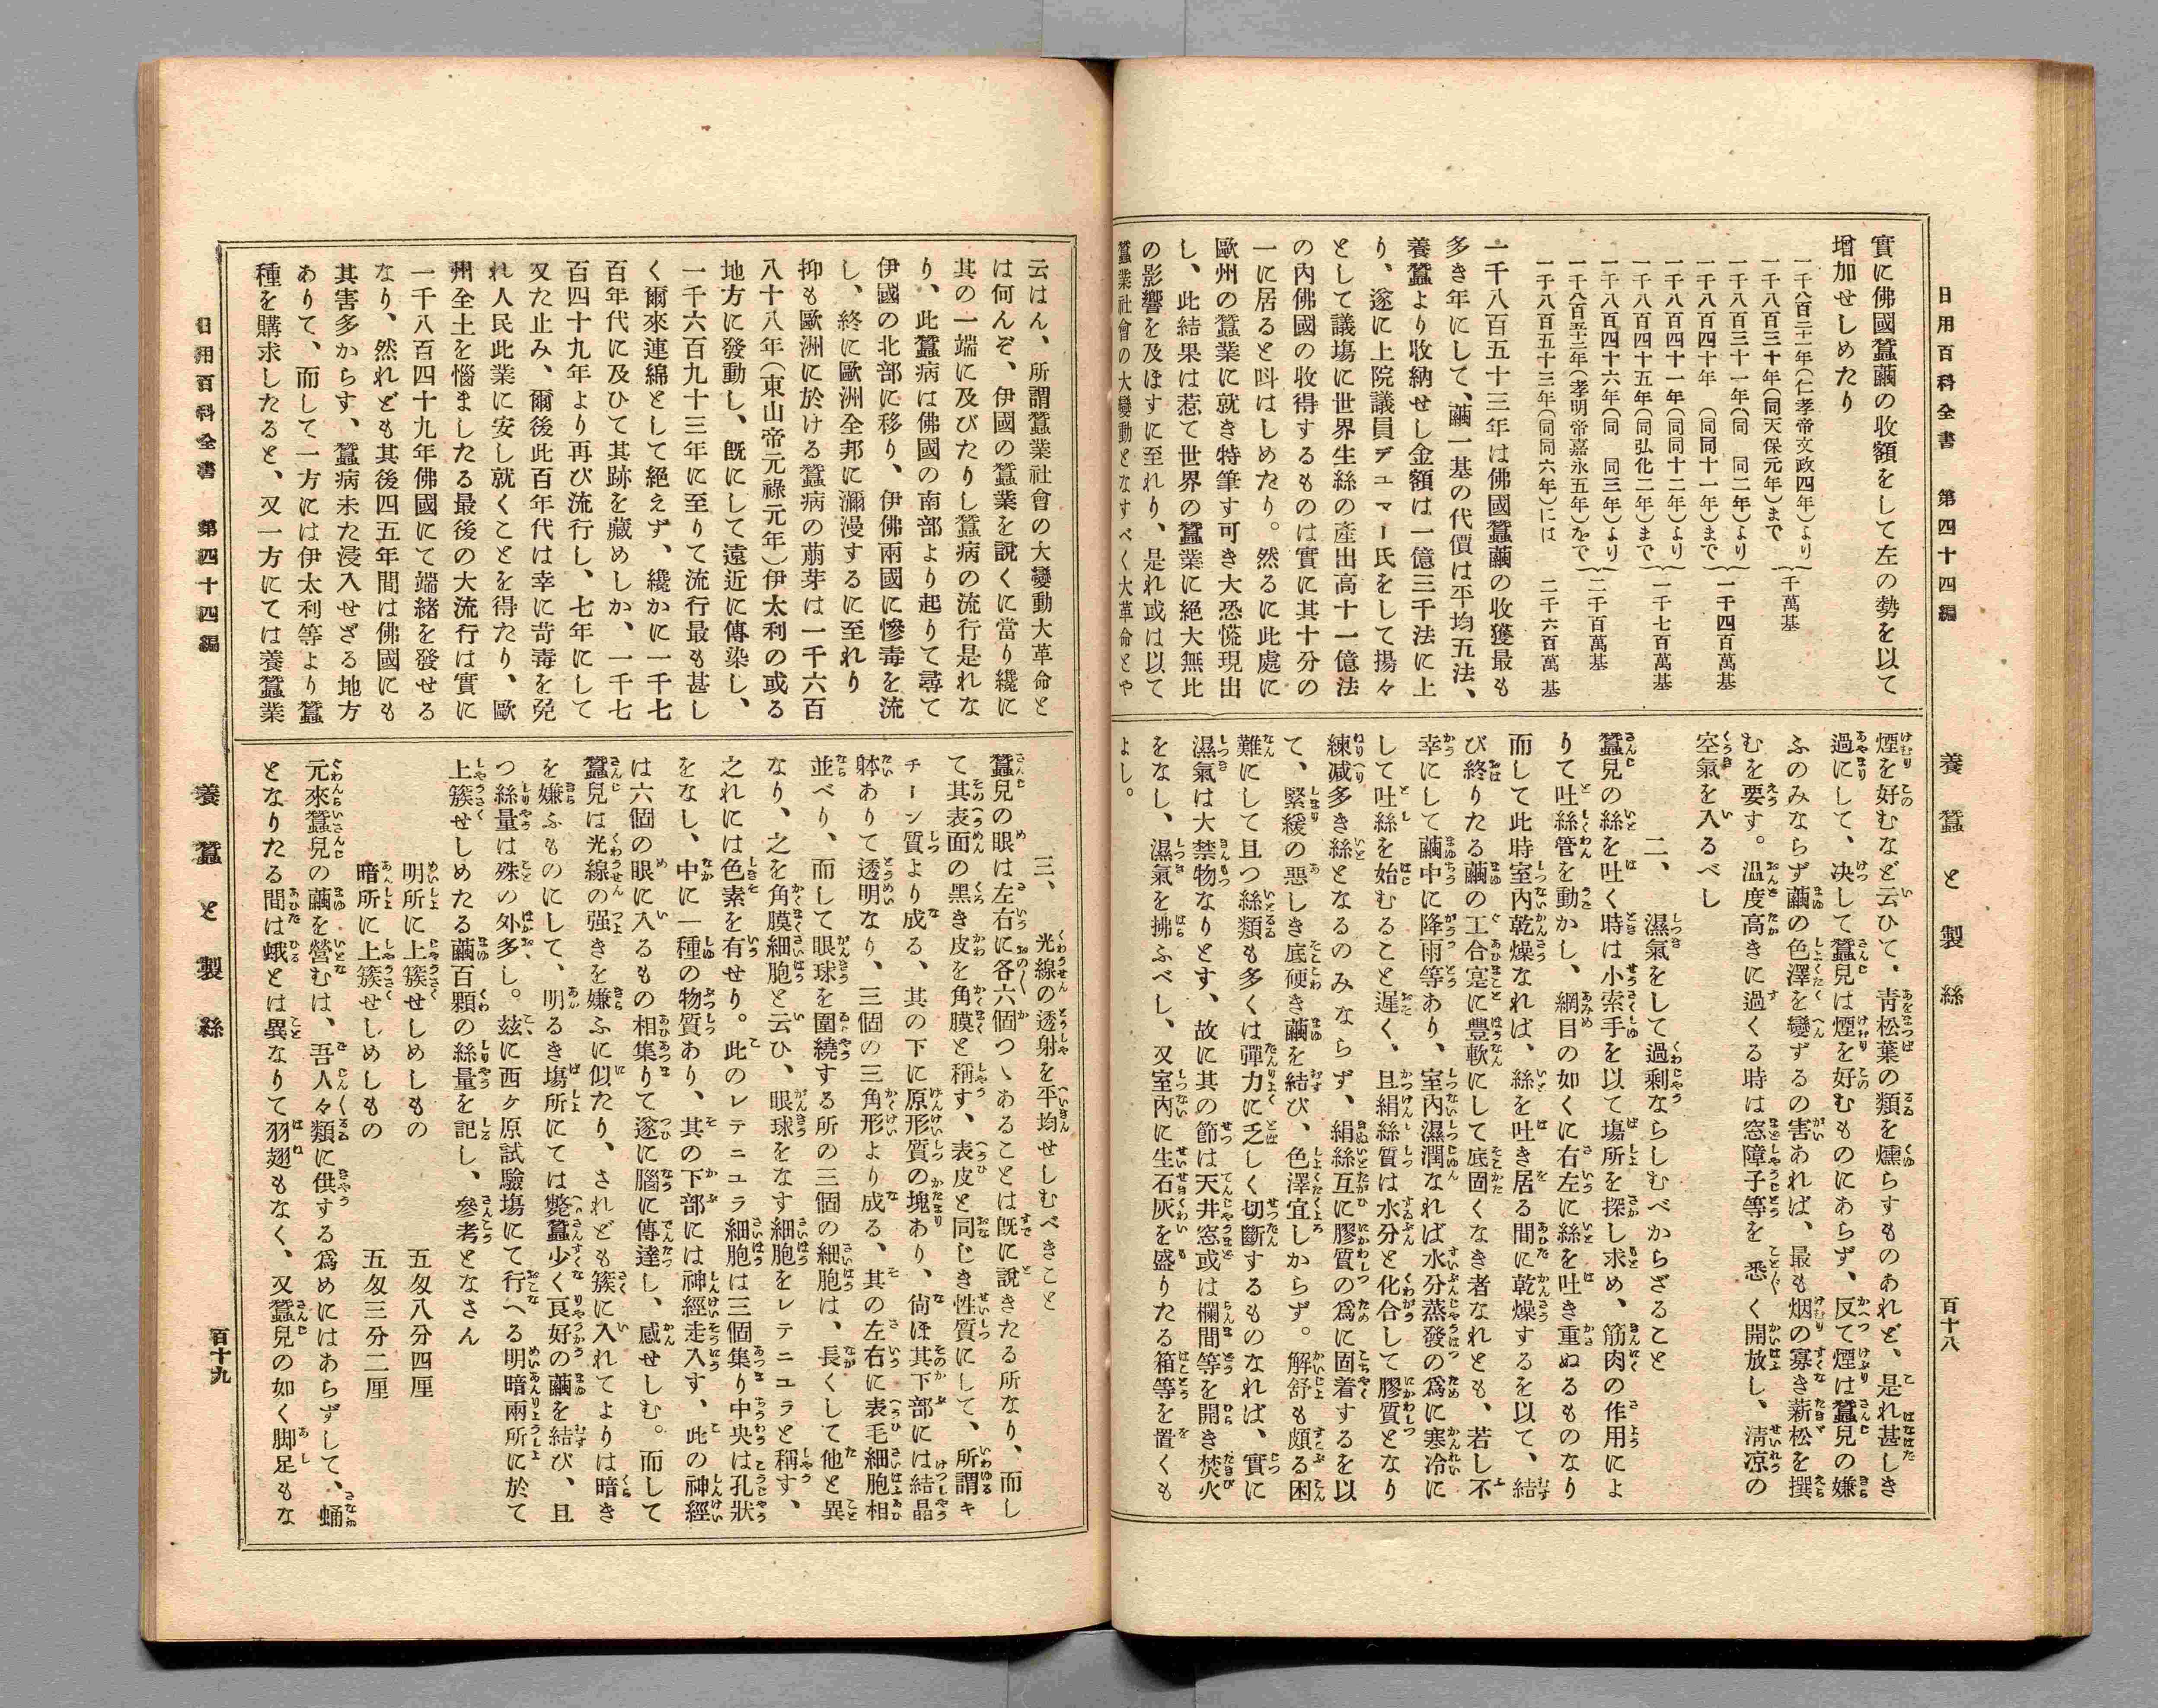 日用百科全書　第四十四編
養蠶と製絲
百十八
實に佛國蠶繭の收額をして左の勢を以て
增加せしめたり
一千八百二十一年(仁孝帝文政四年)より
一千八百三十年(同天保元年)まで
一千萬基
一千八百三十一年(同　同二年)より
一千八百四十年　(同同十一年)まで
一千四百萬基
一千八百四十一年(同同十二年)より
一千八百四十五年(同弘化二年)まで
一千七百萬基
一千八百四十六年(同　同三年)より
一千八百五十二年(孝明帝嘉永五年)まで
二千百萬基
一千八百五十三年(同同六年)には　二千六百萬基
一千八百五十三年は佛國蠶繭の收獲最も
多き年にして、繭一基の代價は平均五法、
養蠶より收納せし金額は一億三千法に上
り、遂に上院議員デユマー氏をして揚々
として議場に世界生絲の產出高十一億法
の內佛國の收得するものは實に其十分の
一に居ると呌はしめたり。然るに此處に
歐州の蠶業に就き特筆す可き大恐慌現出
し、此結果は惹て世界の蠶業に絕大無比
の影響を及ほすに至れり、是れ或は以て
蠶業社會の大變動となすべく大革命とや
煙を好むなど云ひて、靑松葉の類を燻らすものあれど、是れ甚しき
過にして、决して蠶兒は煙を好むものにあらず、反て煙は蠶兒の嫌
ふのみならず繭の色澤を變ずるの害あれば、最も烟の寡き薪松を撰
むを要す。溫度高きに過くる時は窓障子等を　悉く開放し、淸凉の
空氣を入るべし
二、　濕氣をして過剩ならしむべからざること
蠶兒の絲を吐く時は小索手を以て場所を探し求め、筋肉の作用によ
りて吐絲管を動かし、網目の如くに右左に絲を吐き重ぬるものなり
而して此時室內乾燥なれば、絲を吐き居る間に乾燥するを以て、結
び終りたる繭の工合寔に豐軟にして底固くなき者なれとも、若し不
幸にして繭中に降雨等あり、室內濕潤なれば水分蒸發の爲に寒冷に
して吐絲を始むること遲く、且絹絲質は水分と化合して膠質となり
練减多き絲となるのみならず、絹絲互に膠質の爲に固着するを以
て、緊緩の惡しき底硬き繭を結び、色澤宜しからず。解舒も頗る困
難にして且つ絲類も多くは彈力に乏しく切斷するものなれば、實に
濕氣は大禁物なりとす、故に其の節は天井窓或は欄間等を開き焚火
をなし、濕氣を拂ふべし、又室內に生石灰を盛りたる箱等を置くも
よし。
日用百科全書　第四十四編
養蠶と製絲
百十九
云はん、所謂蠶業社會の大變動大革命と
は何んぞ、伊國の蠶業を說くに當り纔に
其の一端に及びたりし蠶病の流行是れな
り、此蠶病は佛國の南部より起りて尋て
伊國の北部に移り、伊佛兩國に慘毒を流
し、終に歐洲全邦に瀰漫するに至れり
抑も歐洲に於ける蠶病の萠芽は一千六百
八十八年(東山帝元祿元年)伊太利の或る
地方に發動し、旣にして遠近に傳染し、
一千六百九十三年に至りて流行最も甚し
く爾來連綿として絕えず、纔かに一千七
百年代に及ひて其跡を藏めしか、一千七
百四十九年より再び流行し、七年にして
又た止み、爾後此百年代は幸に苛毒を免
れ人民此業に安し就くことを得たり、歐
州全土を惱ましたる最後の大流行は實に
一千八百四十九年佛國にて端緖を發せる
なり、然れども其後四五年間は佛國にも
其害多からす、蠶病未た浸入せざる地方
ありて、而して一方には伊太利等より蠶
種を購求したると、又一方にては養蠶業
三、　光線の透射を平均せしむべきこと
蠶兒の眼は左右に各六個つゝあることは旣に說きたる所なり、而し
て其表面の黑き皮を角膜と稱す、表皮と同じき性質にして、所謂キ
チーン質より成る、其の下に原形質の塊あり、尙ほ其下部には結晶
躰ありて透明なり、三個の三角形より成る、其の左右に表毛細胞相
並べり、而して眼球を圍繞する所の三個の細胞は、長くして他と異
なり、之を角膜細胞と云ひ、眼球をなす細胞をレテニユラと稱す、
之れには色素を有せり。此のレテニユラ細胞は三個集り中央は孔狀
をなし、中に一種の物質あり、其の下部には神經走入す、此の神經
は六個の眼に入るもの相集りて遂に腦に傳達し、感せしむ。而して
蠶兒は光線の强きを嫌ふに似たり、されども簇に入れてよりは暗き
を嫌ふものにして、明るき場所にては斃蠶少く良好の繭を結び、且
つ絲量は殊の外多し。玆に西ヶ原試驗場にて行へる明暗兩所に於て
上簇せしめたる繭百顆の絲量を記し、參考となさん
明所に上簇せしめしもの　五匁八分四厘
暗所に上簇せしめしもの　五匁三分二厘
元來蠶兒の繭を營むは、吾人々類に供する爲めにはあらずして、蛹
となりたる間は蛾とは異なりて羽翅もなく、又蠶兒の如く脚足もな